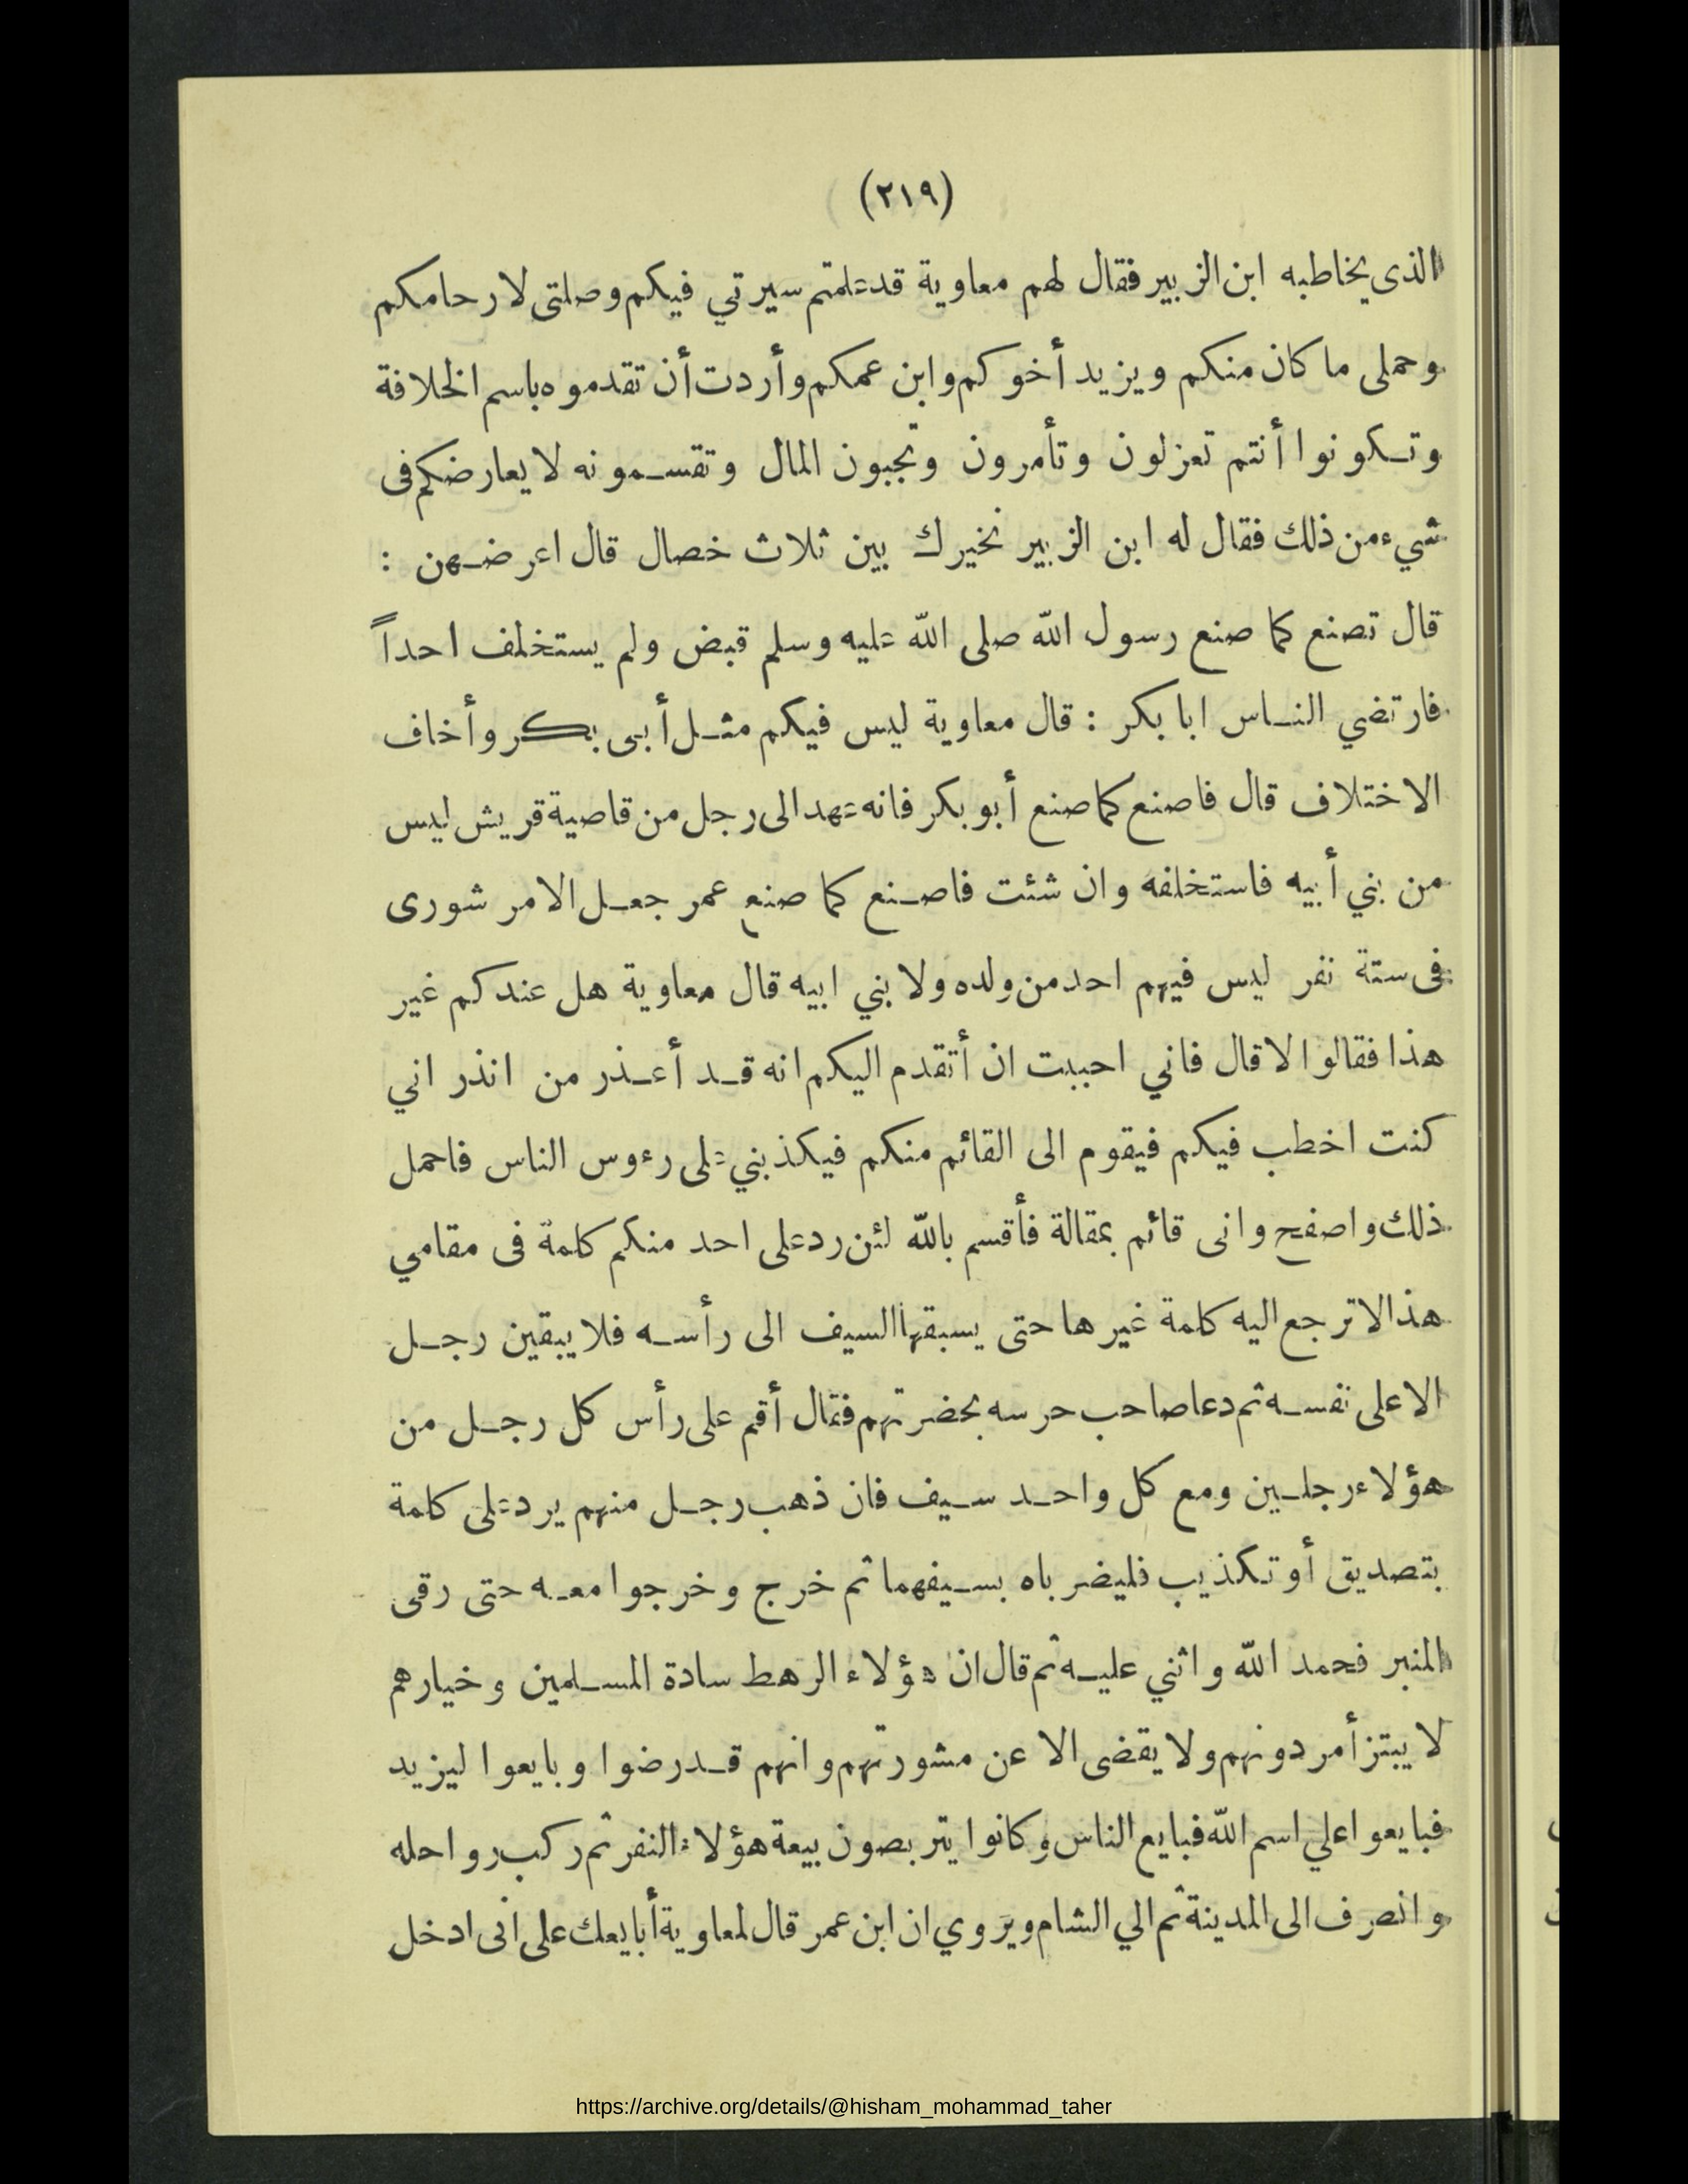 (٢١٩)
الذى يخاطبه ابن الزبير فقال لهم معاوية قد علمتم سيرتي فيكم وصلتى لارحامكم
وحملى ما كان منكم ويزيد أخوكم وابن عمكم وأردت أن تقدموه باسم الخلافة
وتكونوا أنتم تعزلون وتأمرون وتجبون المال وتقسمونه لا يعارضكم فى
شيء من ذلك فقال له ابن الزبير نخيرك بين ثلاث خصال قال اعرضهن :
قال تصنع كما صنع رسول الله صلى الله عليه وسلم قبض ولم يستخلف احداً
فارتضي الناس ابا بكر : قال معاوية ليس فيكم مثل أبى بكر وأخاف
الاختلاف قال فاصنع كما صنع أبو بكر فانه عهد الى رجل من قاصية قريش ليس
من بني أبيه فاستخلفه وان شئت فاصنع كما صنع عمر جعل الامر شورى
فى ستة نفر ليس فيهم احد من ولده ولا بني ابيه قال معاوية هل عندكم غير
هذا فقالوا لا قال فاني احببت ان أتقدم اليكم انه قد أعذر من انذر اني
كنت اخطب فيكم فيقوم الى القائم منكم فيكذبني على رءوس الناس فاحمل
ذلك واصفح وانى قائم بمقالة فأقسم بالله لئن رد على احد منكم كلمة فى مقامي
هذا لا ترجع اليه كلمة غيرها حتى يسبقها السيف الى رأسه فلا يبقين رجل
الا على نفسه ثم دعا صاحب حرسه بحضرتهم فقال أقم على رأس كل رجل من
هؤلاء رجلين ومع كل واحد سيف فان ذهب رجل منهم يرد على كلمة
بتصديق أو تكذيب فليضرباه بسيفهما ثم خرج وخرجوا معه حتى رقى
المنبر فحمد الله واثني عليه ثم قال ان هؤلاء الرهط سادة المسلمين وخيارهم
لا يبتز أمر دونهم ولا يقضى الا عن مشورتهم وانهم قد رضوا وبايعوا ليزيد
فبايعوا علي اسم الله فبايع الناس وكانوا يتربصون بيعة هؤلاء النفر ثم ركب رواحله
وانصرف الى المدينة ثم الي الشام ويروي ان ابن عمر قال لمعاوية أبايعك على انى ادخل
https://archive.org/details/@hisham_mohammad_taher